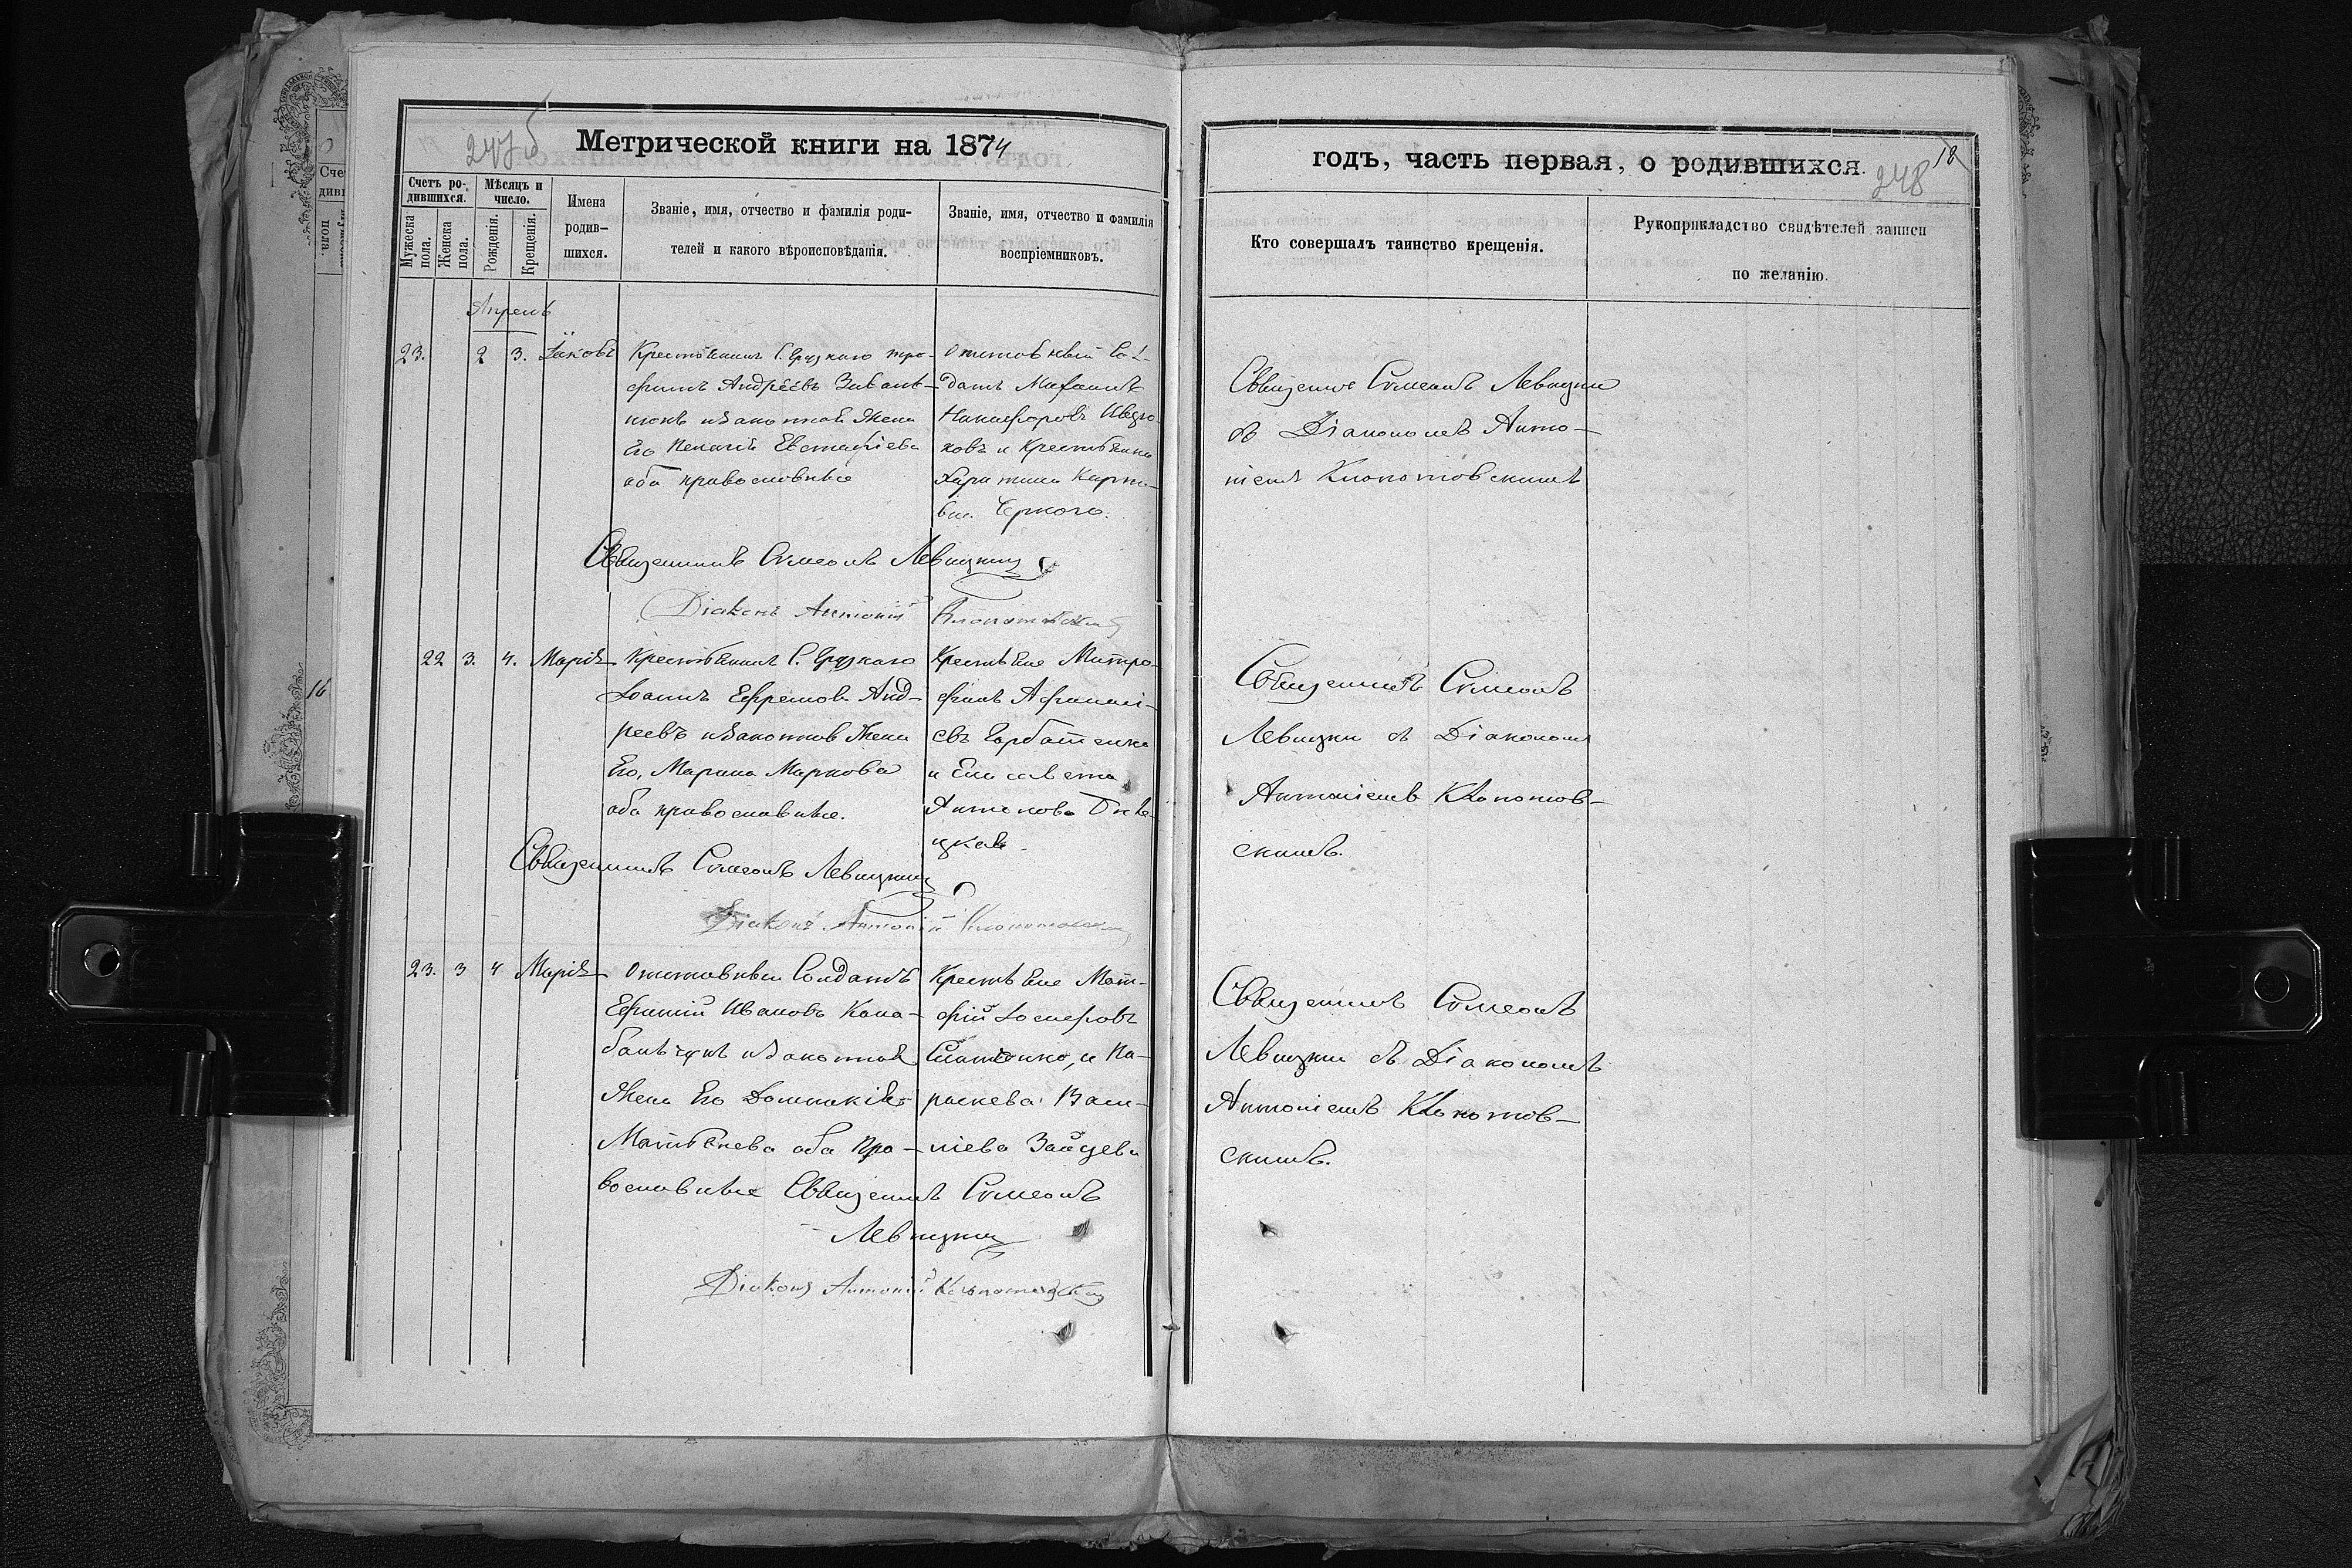 247б
Метрической книги на 1874
Счетъ родившихся.
Мужеска пола.
Женска пола.
Мѣсяцъ и число.
Рожденія.
Крещенія.
Имена родив-
шихся.
Званіе, имя, отчество и фамилія роди-
телей и какого вѣроисповѣданія.
Званіе, имя, отчество и фамилія
воспріемниковъ.
Апрель
23. 2 3. Іаковъ
Крестьянинъ С. Грузкаго Тро-
фимъ Андрѣевъ
изаконная Жена
Его Пелагія Евстафіева
оба православные
Отставный Сол-
датъ
Никифоровъ
ковъ и Крестьянка
Карпо-
ва
Священникъ Симеонъ Левицкий
Діаконъ Антоній Клопотовскій
22 3. 4. Марія
Крестьянинъ С. Грузкаго
Іоаннъ Ефремовъ Анд-
реевъ изаконная Жена
Его, Марина Маркова
оба православные.
Крестьяне Митро-
фанъ Афанасі-
евъ Горбатенко
и Елисавета
Антонова
цкая
Священникъ Симеонъ Левицкий
Діаконъ Антоній Клопотовскій
23. 3 4 Марія
Отставный Солдатъ
Ефимій Ивановъ Кона-
изаконная
Жена Его Домникія
Матвѣева оба Пра-
вославные Священникъ Симеонъ
Левицкий
Крестьяне Мат-
фій Іосифовъ
и Па-
раскева Васи-
лиева Зайцева
Діаконъ Антоній Клопотовскій
годъ, часть первая, о родившихся.
248
18
Кто совершалъ таинство крещенія.
Рукоприкладство свидѣтелей записи
по желанію.
Священникъ Симеонъ Левицки
съ Діакономъ Анто-
ніемъ Клопотовскимъ
Священникъ Симеонъ
Левицки съ Діакономъ
Антоніемъ Клопотов-
скимъ.
Священникъ Симеонъ
Левицки съ Діакономъ
Антоніемъ Клопотов-
скимъ.
16